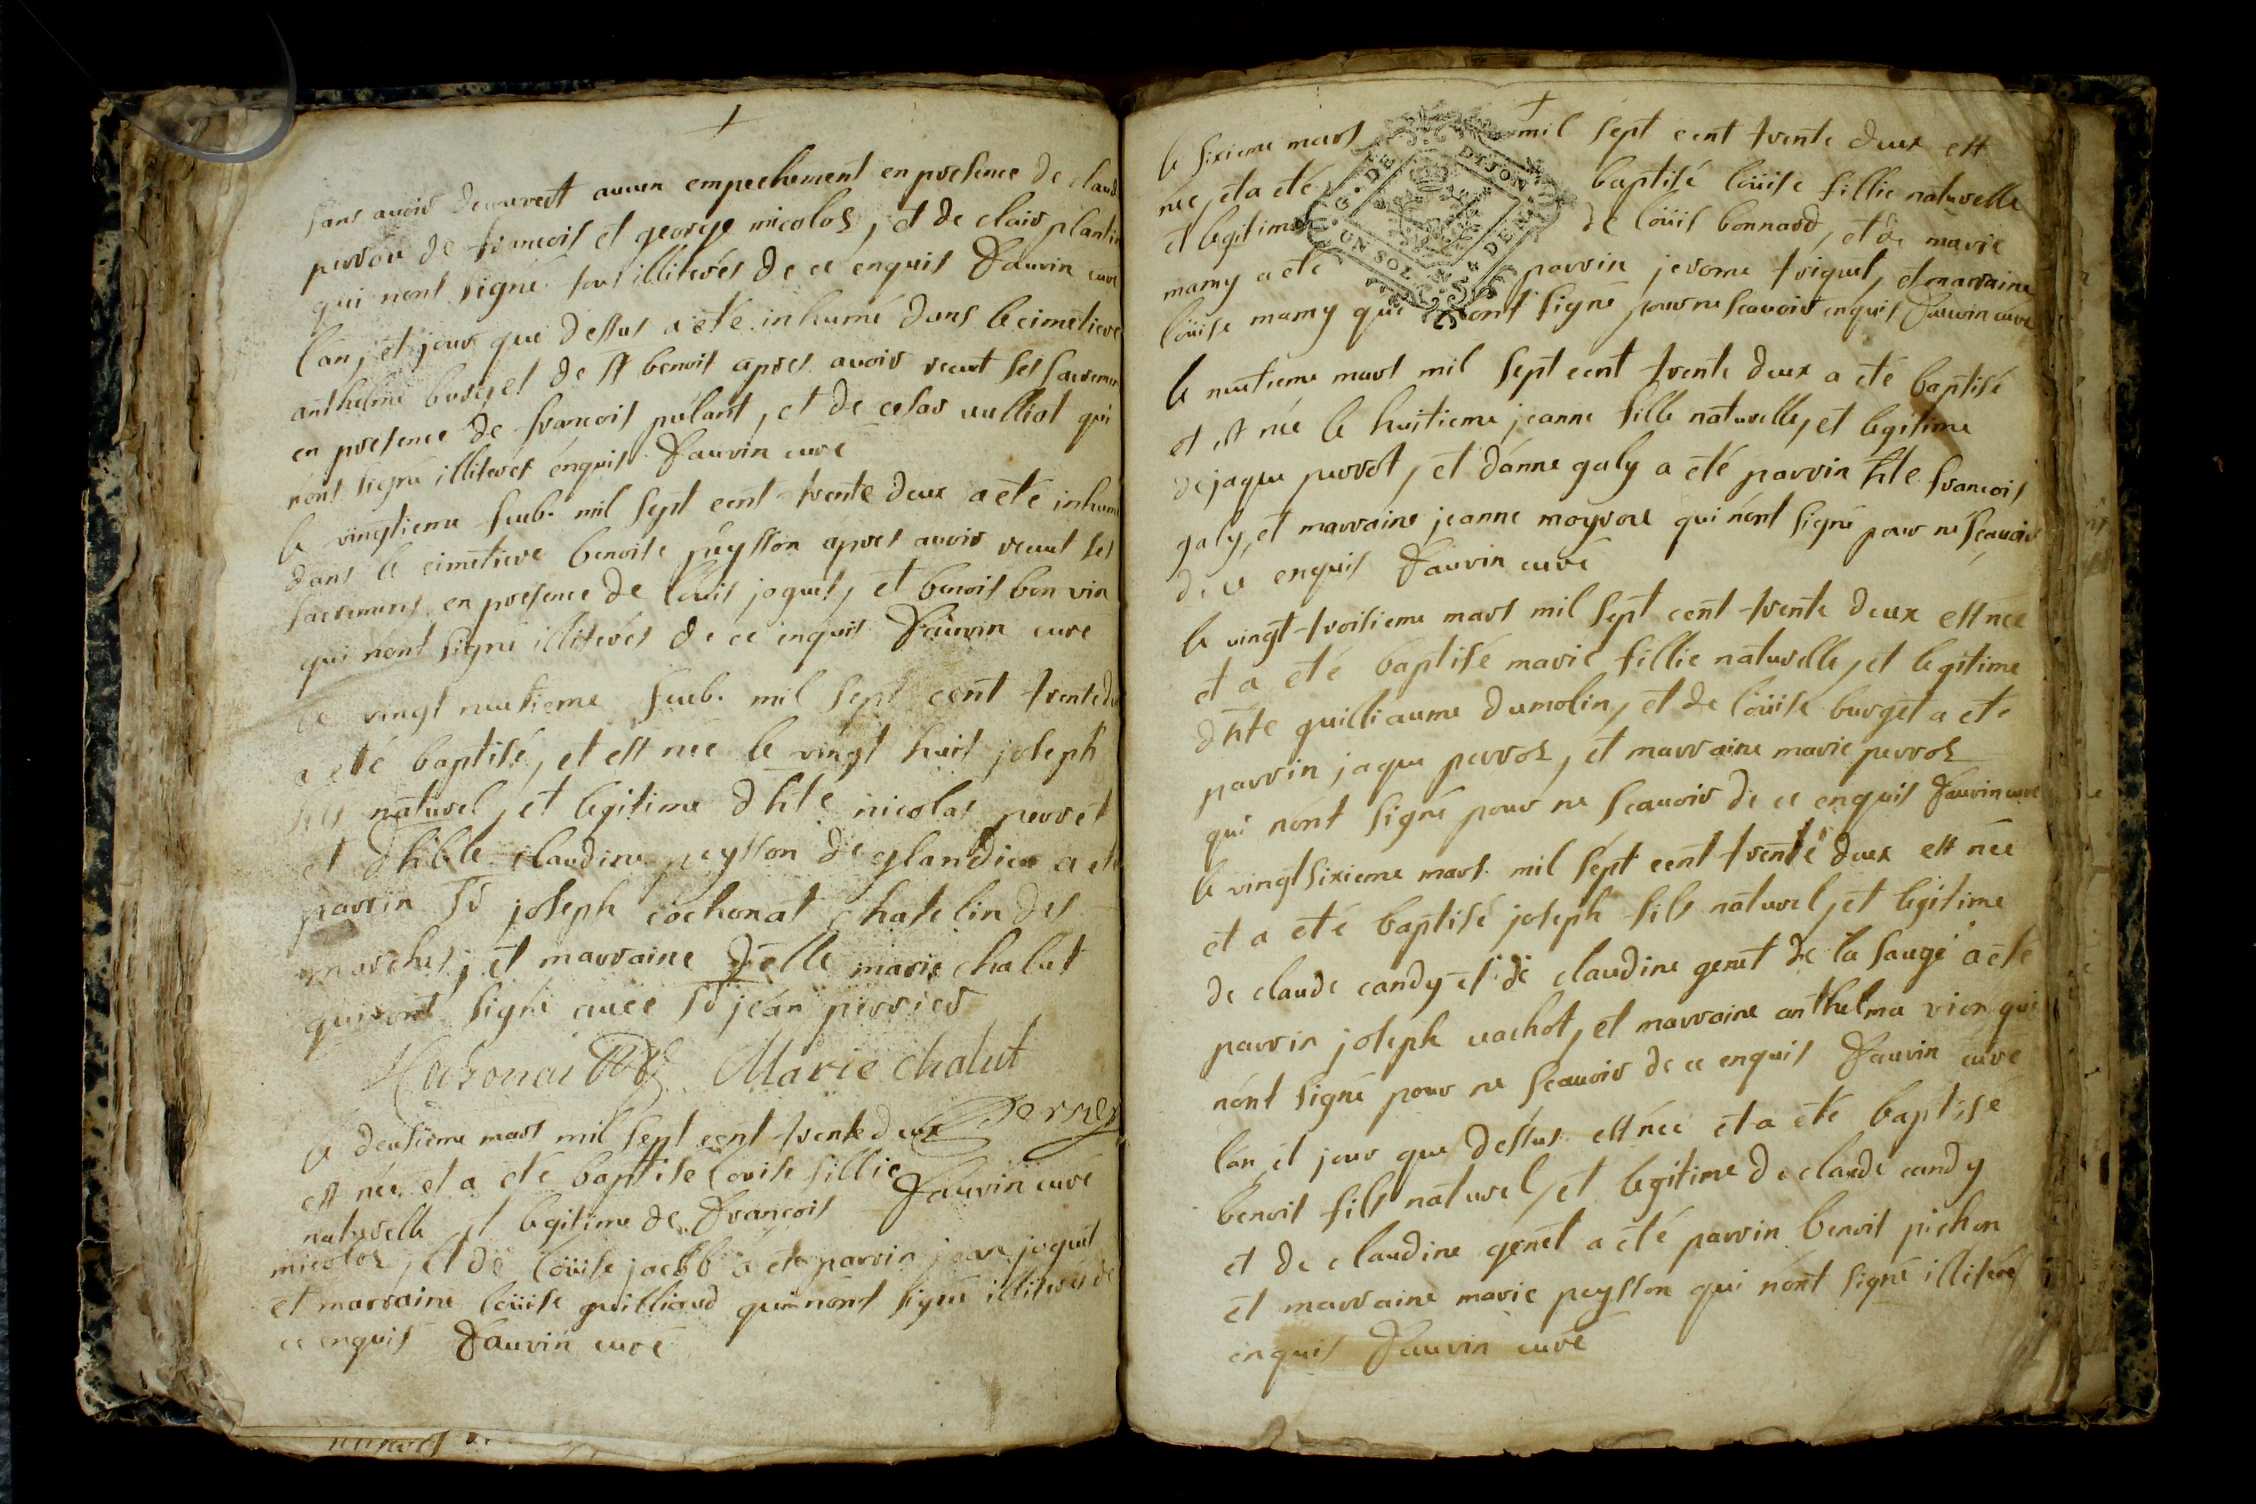 sans avoir decouvert aucun empechement en presence de claud
perrou de francois et george micoloz, et de clair plantin
qui nont signé tous illiterés de ce enquis Fauvin curé
lan, et jour que dessus a eté inhumé dans le cimetiere
anthelme burget de st benoit apres avoir receut ses sacremen
en presence de francois pelant, et de cesar vulliot qui
nont signé illiteres enquis Fauvin curé
le vingtieme feub. mil sept cent trente deux a eté inhumé
dans le cimetiere benoite peysson apres avoir receut ses
sacremens en presence de loüis joquet, et benoit bon vin
qui nont signé illiterés de ce enquis Fauvin curé
le vingt neufieme feub. mil sept cent trente deux
a eté baptisé, et est née le vingt huit joseph
fils naturel, et legitime dhte nicolas perret
et dhble claudine peysson de glandieu a eté
parrin sr joseph cochonat chatelin des
marches, et marraine delle marie chalut
qui ont signé avec sr jean perrier
Marie chalut
Perrier
le deusieme mars mil sept cent trente deux
est née et a eté baptisé loüise fillie
naturelle et legitime de francois Fauvin curé
micoloz, et de loüise jacob a eté parrin jean joquet
et marraine loüise guilliaud qui nont signé illiterés de
ce enquis Fauvin curé
le sixieme mars mil sept cent trente deux est
née, et a eté baptisé loüise fillie naturelle
et legitime de loüis bonnard, et de marie
mamy a eté parrin jerome triquet, et marraine
loüise mamy qui nont signé pour ne scavoir enquis Fauvin curé
G. DE DIJON
UN SOL
DEN
le neufieme mars mil sept cent trente deux a eté baptisé
et est née le huitieme jeanne fille naturelle, et legitime
de jaque perrot, et danne galy a eté parrin hte francois
galy, et marraine jeanne moyrone qui nont signé pour ne scavoir
de ce enquis Fauvin curé
le vingt-troisieme mars mil sept cent trente deux est née
et a eté baptisé marie fillie naturelle, et legitime
dhte guilliaume dumolin, et de loüise burget a eté
parrin jaque perroz, et marraine marie perroz
qui nont signé pour ne scavoir de ce enquis Fauvin curé
le vingt sixieme mars mil sept cent trente deux est née
et a eté baptisé joseph fils naturel, et legitime
de claude candy et de claudine genet de la sauge a eté
parrin joseph vachot, et marraine anthelma vion qui
nont signé pour ne scavoir de ce enquis Fauvin curé
lan, et jour que dessus est née et a eté baptisé
benoit fils naturel, et legitime de claude candy
et de claudine genet a eté parrin benoit pichon
et marraine marie peysson qui nont signé illiterés
enquis Fauvin curé